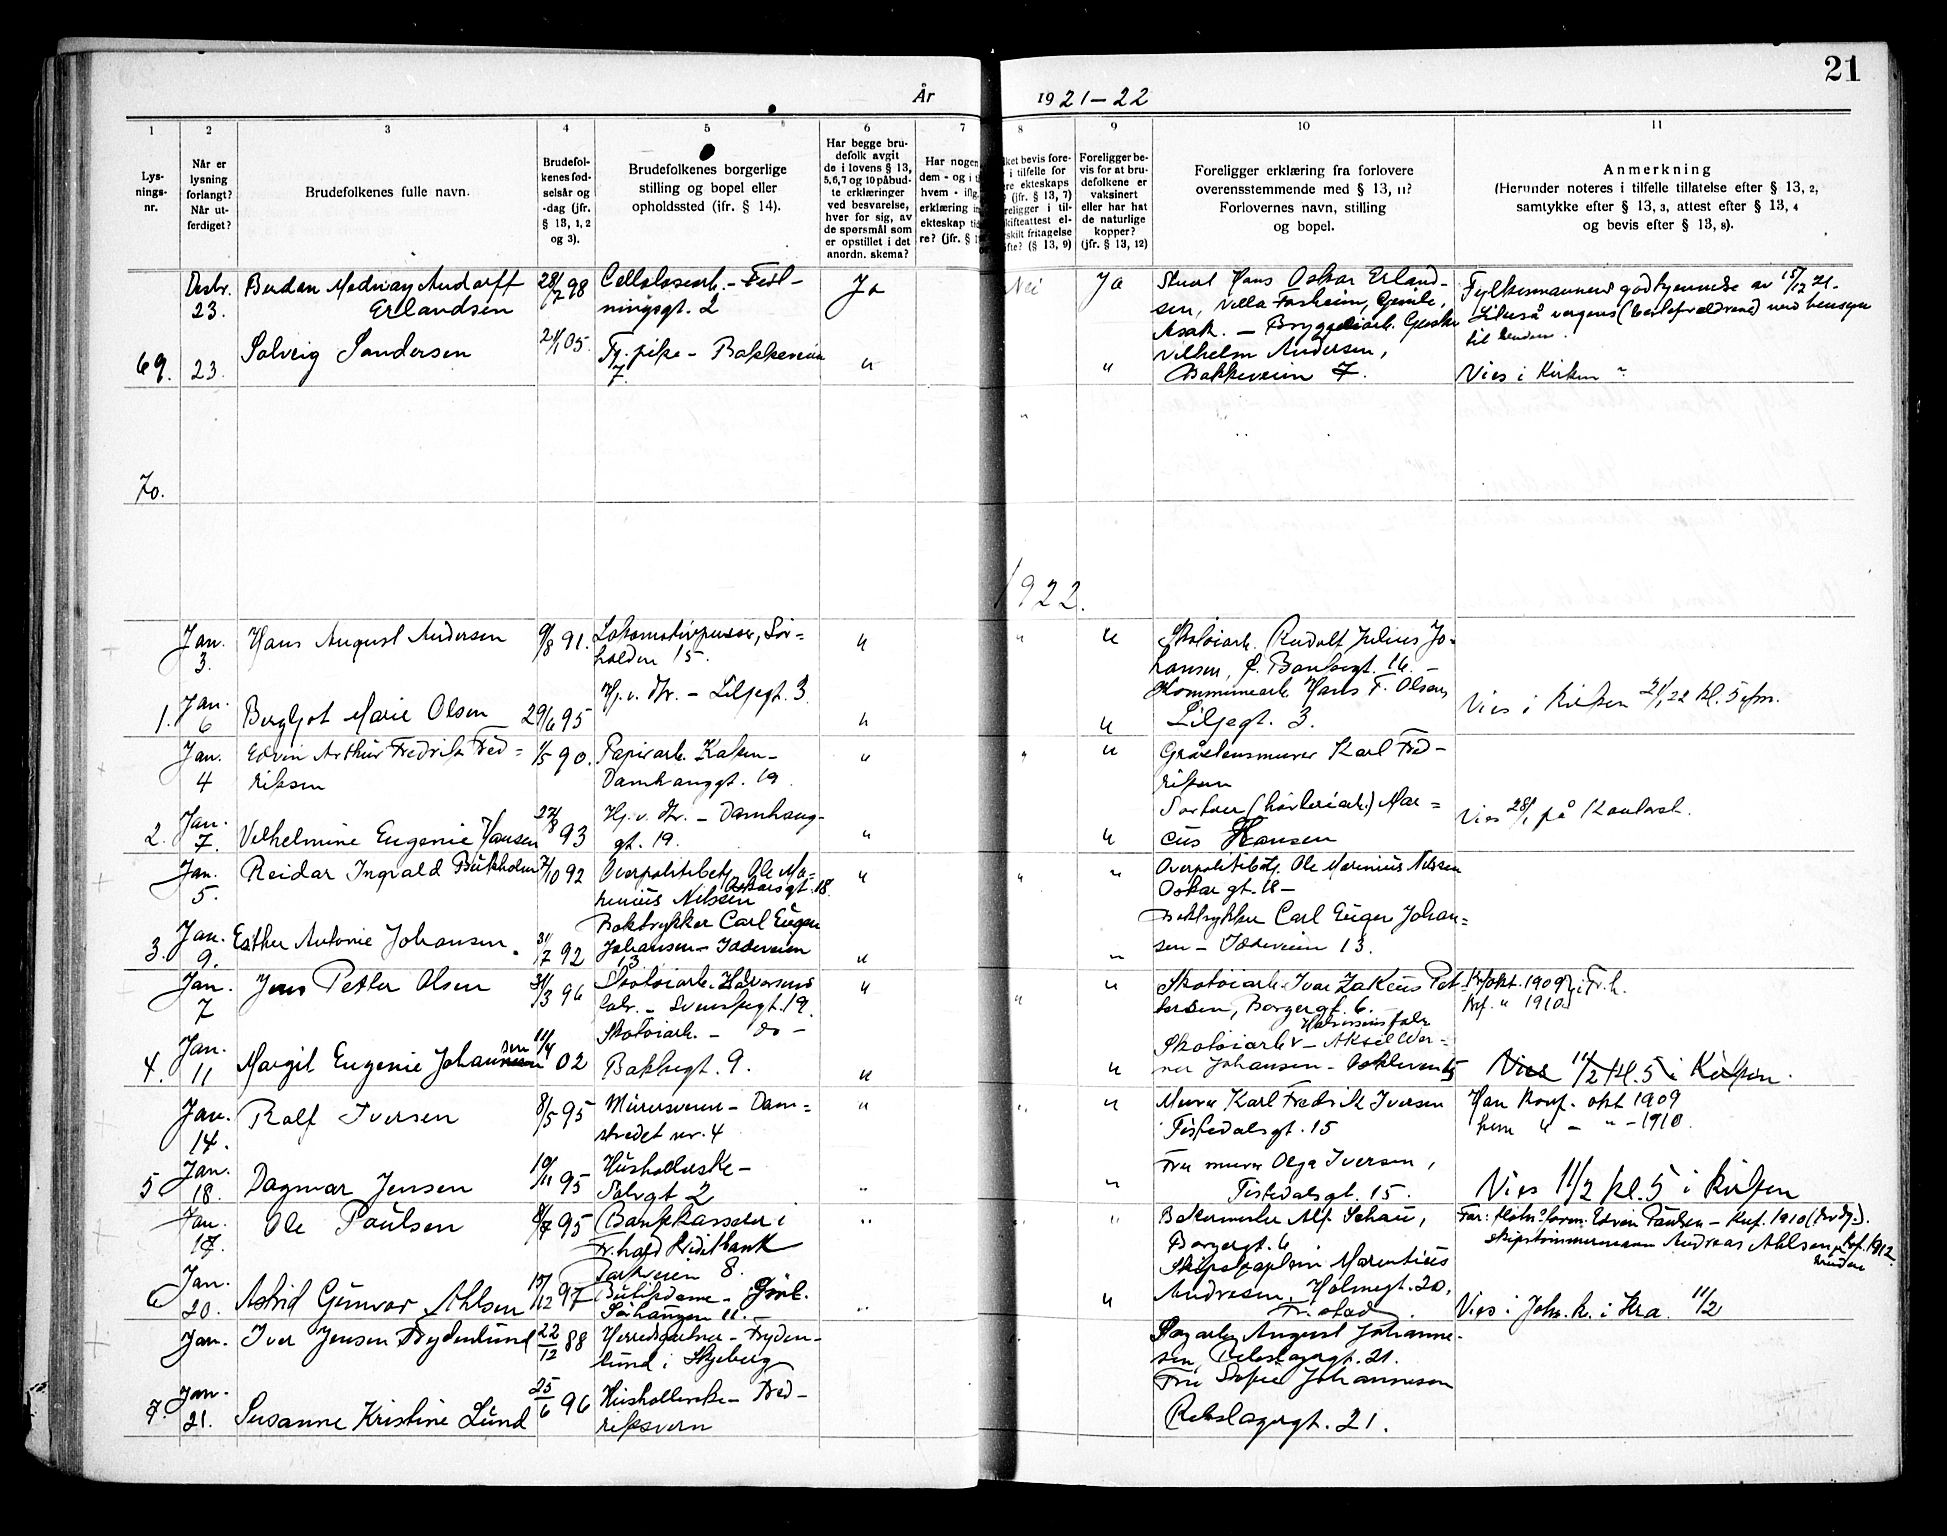 21
År 1921-22
1 2 3 4 5 6 7 8 9 10 11
Lys-
nings-
nr.
Når er
lysning
forlangt?
Når ut-
ferdiget?
Brudefolkenes fulle navn.
Brudefol-
kenes fød-
selsår og
-dag (jfr.
§ 13, 1, 2
og 3).
Brudefolkenes borgerlige
stilling og bopel eller
opholdssted (ifr. § 14).
Har begge bru-
defolk avgit
de i lovens § 13,
5,6,7 og 10 påbud-
te erklæringer
ved besvarelse,
hver for sig, av
de spørsmål som
er opstillet i det
anordn. skema?
Har nogen
dem - og i
hvem - ifl.
erklæring
ekteskap
re? (jfr. §
ket bevis fore-
i tilfelle for
re ekteskaps
? (jfr. § 13, 7)
religger i til-
skifteattest el-
skilt fritagelse
fte? (§ 13, 9)
Foreligger be-
vis for at bru-
defolkene er
vaksinert
eller har hat
de naturlige
kopper?
(jfr. § 13, 12)
Foreligger erklæring fra forlovere
overensstemmende med § 13, 11?
Forlovernes navn, stilling
og bopel.
Anmerkning
(Herunder noteres i tilfelle tillatelse efter § 13, 2,
samtykke efter § 13, 3, attest efter § 13, 4
og bevis efter § 13, 8).
Desbr.
23.
Erlandsen
28/7 98
Cellulosearb. –
ningsgt. 2
Ja
Nei
Ja
Hans Oskar Erland-
sen, Villa
Asak. – Bryggeriarb.
Fylkesmannens godkjennelse av 15/12 21.
69. 23.
Solveig Sandersen
21/1 05.
Fr. pike – Bakkeveien
7.
"
"
Vilhelm Andersen,
Bakkeveien 7.
Vies i Kirken
70.
"
1922.
Jan.
3.
Hans August Andersen
9/8 91.
Lokomotivpusser, Sør-
halden 15.
"
"
"
Skotøiarb. Rudolf Julius Jo-
hansen, Bankgt. 16. –
1. Jan.
6
Bergljot Marie Olsen
29/6 95
Hj. v. Mr. – Liljegt. 3
"
"
Kommunearb. Hans F. Olsen
Liljegt. 3.
Vies i Kirken 21/1 22 kl. 5 efm.
Jan.
4
Edvin Arthur Fredrik Fred-
riksen
1/5 90.
Papirarb.
Damhauggt. 19
"
"
"
Gråstensmurer Karl Fred-
riksen
2. Jan.
7.
Vilhelmine Eugenie Hansen
27/8 93
Hj. v. Mr. – Damhaug-
gt. 19.
"
"
Sorterer Mar-
cus Hansen
Vies 28/1 på Kontoret.
Jan.
5.
Reidar Ingvald Bukholm
7/10 92
Overpolitibetj. Ole Ma-
renius Nilsen Oskarsgt. 18.
"
"
"
Overpolitibetj. Ole Marenius Nilsen
Oskar gt. 18 –
3. Jan.
9.
Esther Antonie Johansen
31/7 92
Boktrykker Carl Eugen
Johansen – Iddeveien
13
"
"
Boktrykker Carl Eugen Johan-
sen – Iddeveien 13.
Jan.
7
Jens Petter Olsen
31/3 96
Skotøiarb. Halvorsens
fabr. – Svenskegt. 19.
"
"
"
Skotøiarb. Ivar Zakeus Pet-
tersen, Borgergt. 6. –
Kf. okt. 1909 i Fr.h.
Kf. " 1910
4. Jan.
11
Margit Eugenie Johansen
11/4 02
Skotøiarb. – do –
Bakkegt. 9.
"
"
Halvorsens fabr
Skotøiarb – Aksel Wer-
ner Johansen –
Vies 11/2 Kl. 5 i Kirken.
Jan.
14.
Rolf Iversen
8/5 95
Murersvenn – Dam-
stredet nr. 4
"
"
"
Murer Karl Fredrik Iversen
Tistedalsgt. 15
Han konf. okt 1909
hun " – " – 1910.
5 Jan.
18.
Dagmar Jensen
10/11 95
Husholderske –
Solvgt 2
"
"
Fru murer Olga Iversen,
Tistedalsgt. 15.
Vies 11/2 kl. 5 i Kirken
Jan.
17.
Ole Paulsen
8/7 95
Bankkasserer i
Fr.hald Kreditbank
Parkveien 8.
"
"
"
Bakermester Alf. Schau,
Borgergt. 6
Edvin Paulsen – Knf. 1910
skipstømmermann Andreas Ahlsen Kf. 1912
bruden
6 Jan.
20.
Astrid Gunvor Ahlsen
15/12 97
Butikdame –
Sørhaugen 11.
"
"
Skipskaptein Marentius
Andresen, Holmegt. 20,
Fr.stad
Vies i Joh. k. i Kra. 11/2
Jan.
Iver Jensen Frydenlund
22/12 88
Herredsgartner – Fryden-
lund i Skjeberg
Sagarb. August Johanne-
sen, Rebslagergt. 21.
7. Jan.
21.
Susanne Kristine Lund
25/6 96
Husholderske – Fred-
riksvern
Fru Sofie Johannesen
Rebslagergt. 21.